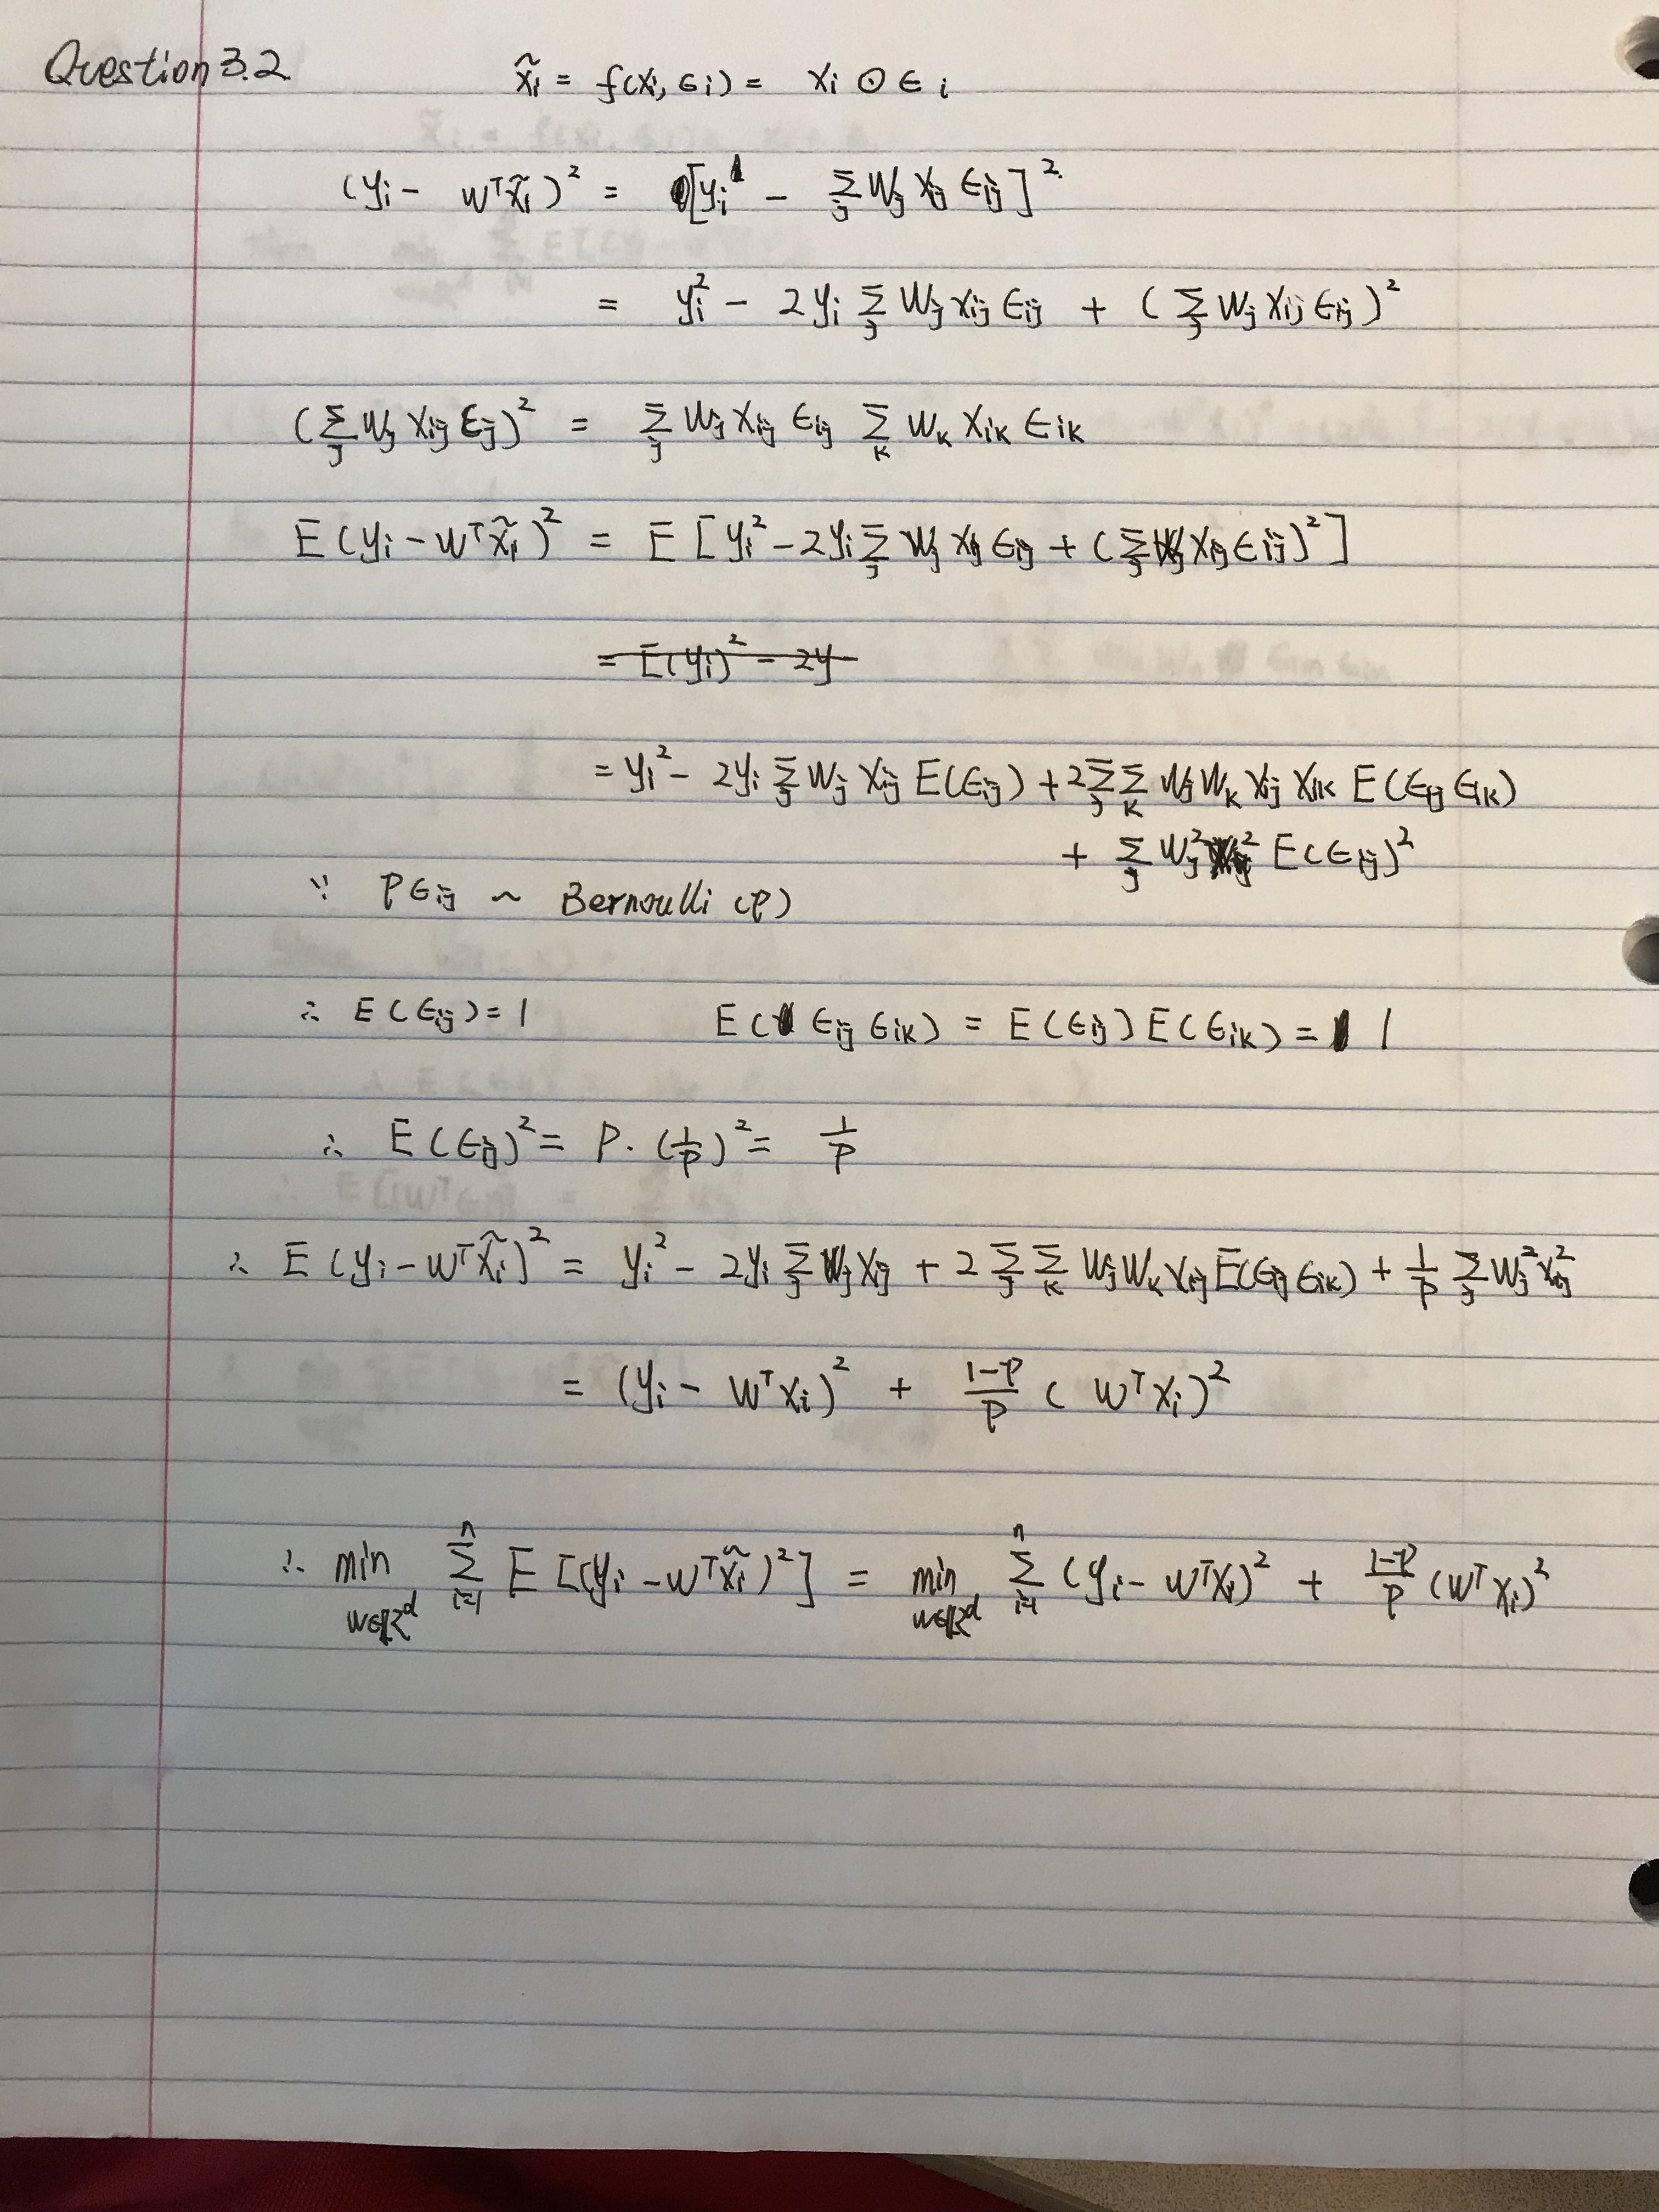 Question 3.2
x̃ᵢ = f(xᵢ, ϵᵢ) = xᵢ ⊙ ϵᵢ
(yᵢ − wᵀx̃ᵢ)² = [yᵢ − Σⱼ wⱼ xᵢⱼ ϵᵢⱼ]²
= yᵢ² − 2yᵢ Σⱼ wⱼ xᵢⱼ ϵᵢⱼ + (Σⱼ wⱼ xᵢⱼ ϵᵢⱼ)²
(Σⱼ wⱼ xᵢⱼ ϵᵢⱼ)² = Σⱼ wⱼ xᵢⱼ ϵᵢⱼ Σₖ wₖ xᵢₖ ϵᵢₖ
E(yᵢ − wᵀx̃ᵢ)² = E[yᵢ² − 2yᵢ Σⱼ wⱼ xᵢⱼ ϵᵢⱼ + (Σⱼ wⱼ xᵢⱼ ϵᵢⱼ)²]
= E(yᵢ)² − 2y
= yᵢ² − 2yᵢ Σⱼ wⱼ xᵢⱼ E(ϵᵢⱼ) + 2 Σⱼ Σₖ wⱼ wₖ xᵢⱼ xᵢₖ E(ϵᵢⱼ ϵᵢₖ)
+ Σⱼ wⱼ² xᵢⱼ² E(ϵᵢⱼ)²
∵ pϵᵢⱼ ~ Bernoulli (p)
∴ E(ϵᵢⱼ) = 1 E(ϵᵢⱼ ϵᵢₖ) = E(ϵᵢⱼ) E(ϵᵢₖ) = 1
∴ E(ϵᵢⱼ)² = p · (1/p)² = 1/p
∴ E(yᵢ − wᵀx̃ᵢ)² = yᵢ² − 2yᵢ Σⱼ wⱼ xᵢⱼ + 2 Σⱼ Σₖ wⱼ wₖ xᵢⱼ E(ϵᵢⱼ ϵᵢₖ) + 1/p Σⱼ wⱼ² xᵢⱼ²
= (yᵢ − wᵀxᵢ)² + (1−p)/p (wᵀxᵢ)²
∴ min_{w∈ℝᵈ} Σᵢ₌₁ⁿ E[(yᵢ − wᵀx̃ᵢ)²] = min_{w∈ℝᵈ} Σᵢ₌₁ⁿ (yᵢ − wᵀxᵢ)² + (1−p)/p (wᵀxᵢ)²